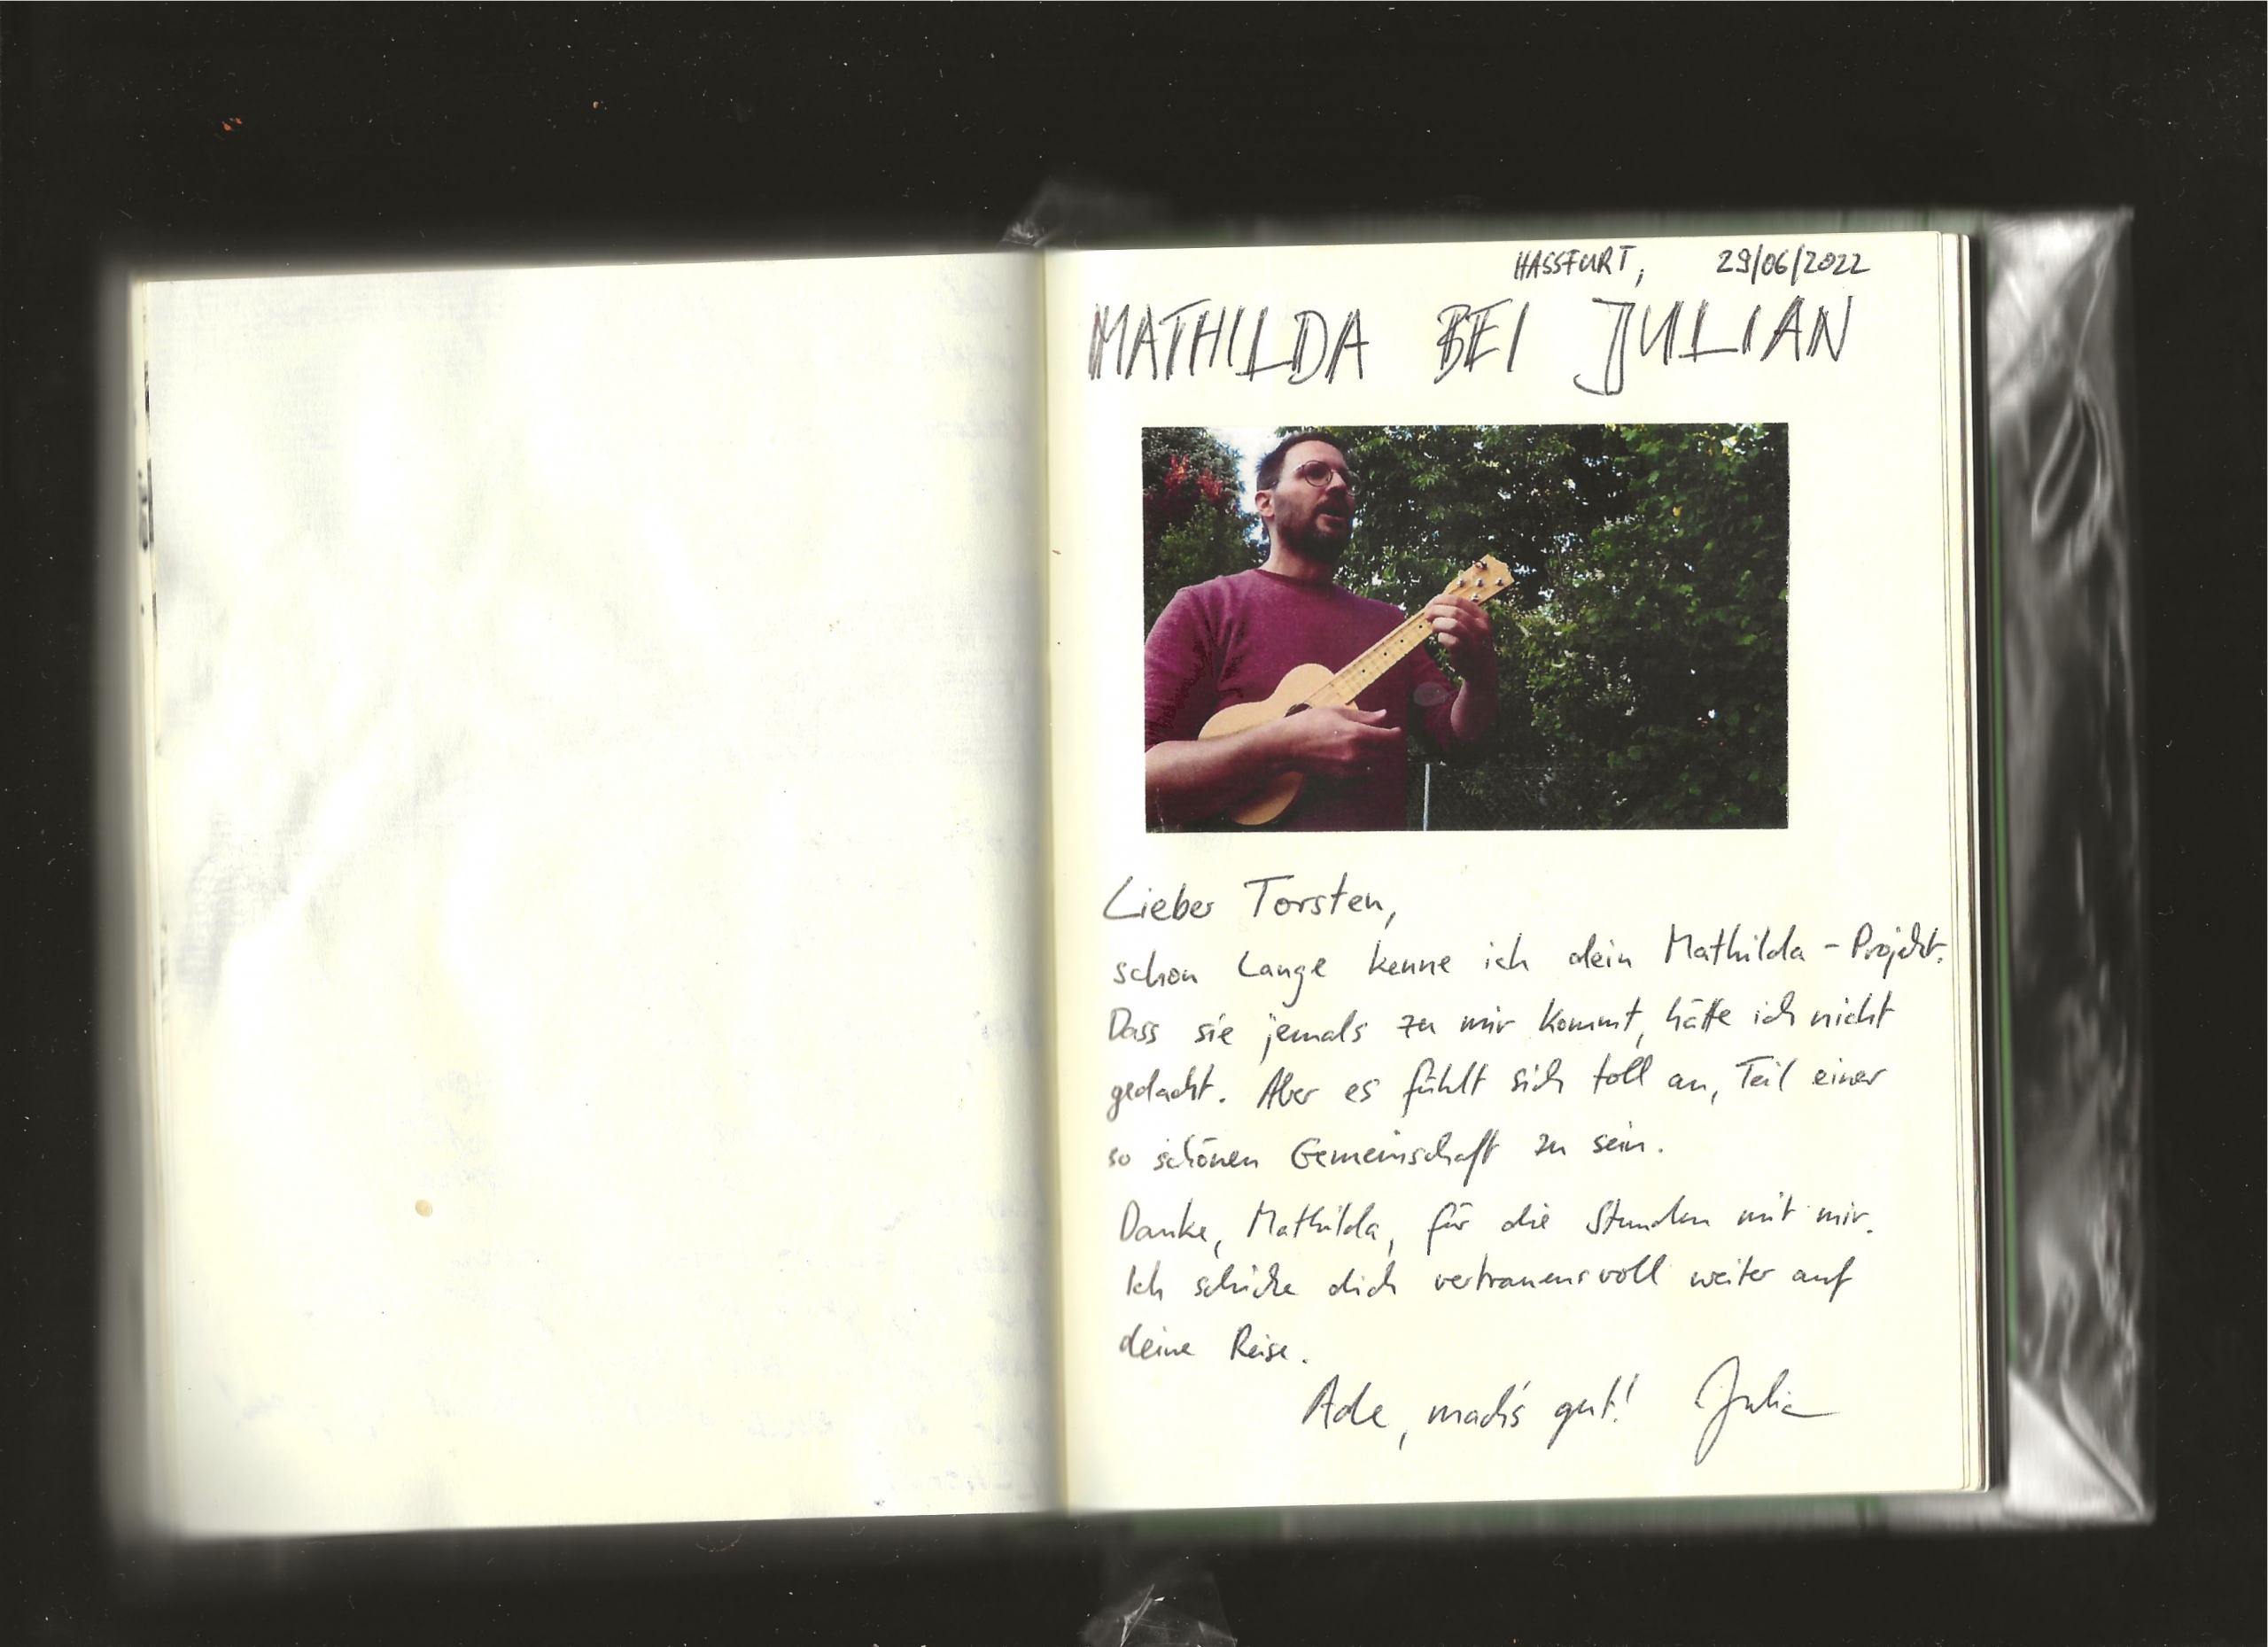 HASSFURT, 29/06/2022
MATHILDA BEI JULIAN
Lieber Torsten,
schon lange kenne ich dein Mathilda-Projekt.
Dass sie jemals zu mir kommt, hätte ich nicht
gedacht. Aber es fühlt sich toll an, Teil einer
so schönen Gemeinschaft zu sein.
Danke, Mathilda, für die Stunden mit mir.
Ich schicke dich vertrauensvoll weiter auf
deine Reise.
Ade, mach's gut! Julian